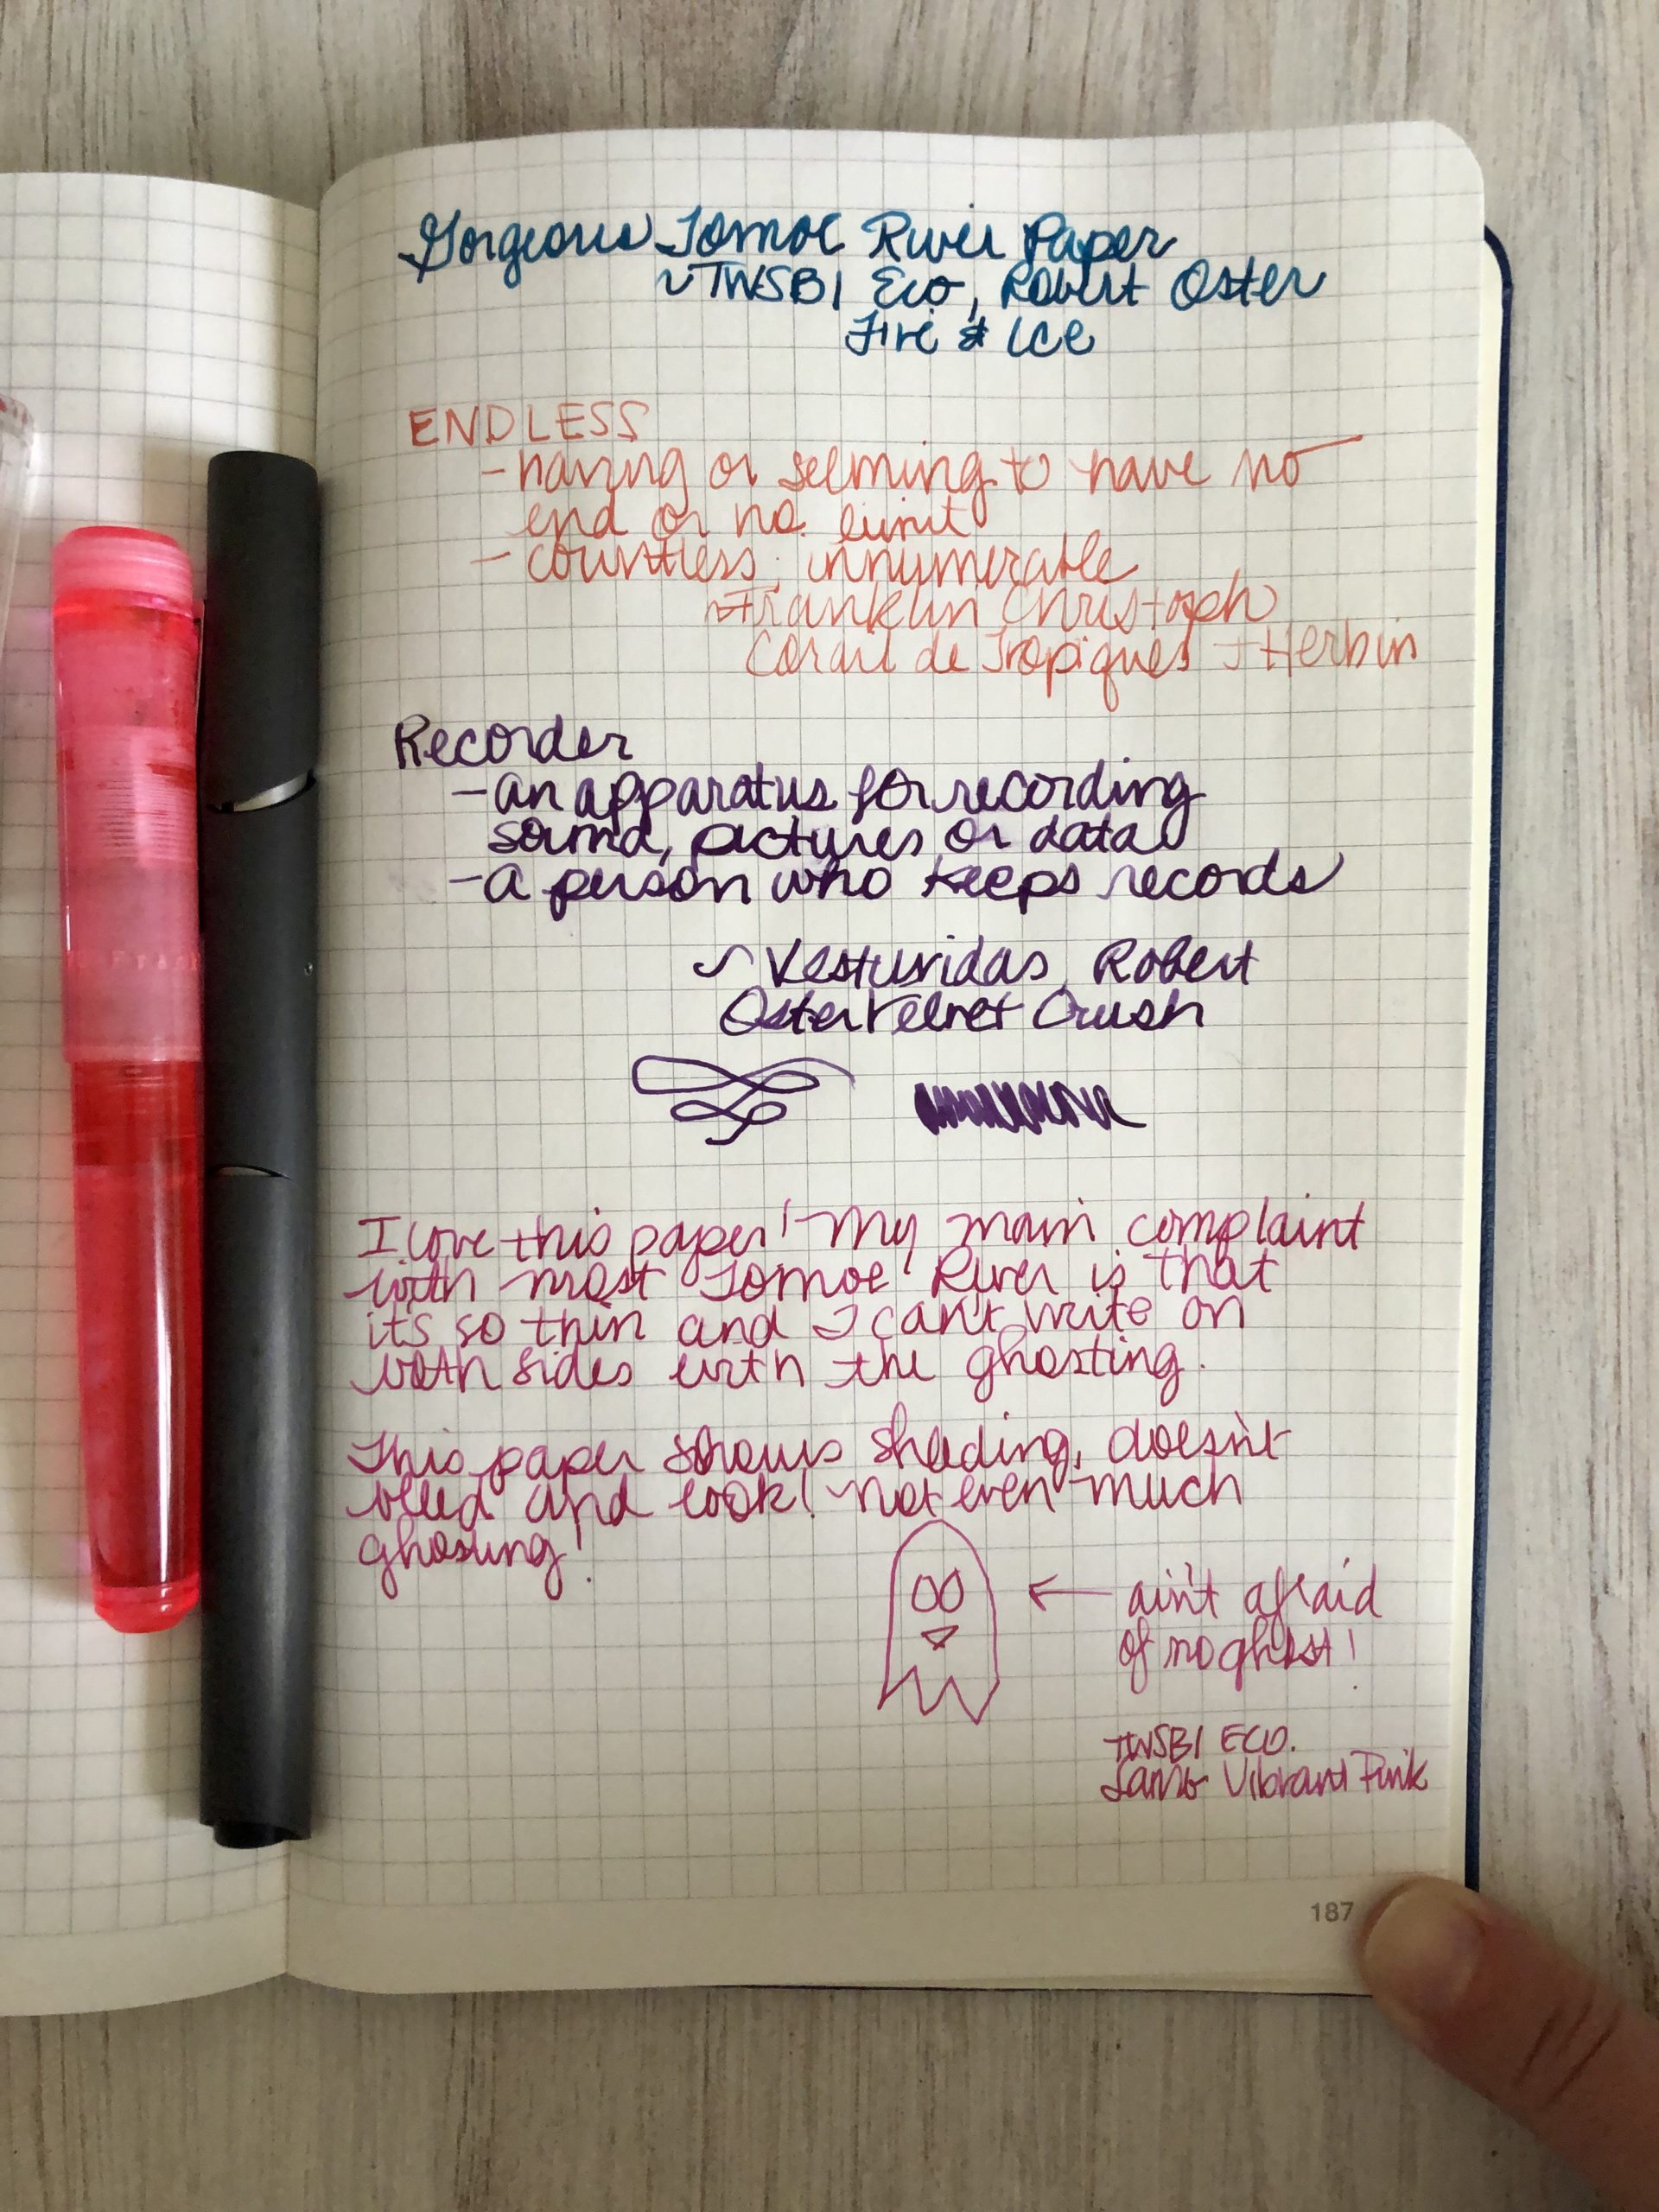 Gorgeous Tomoe River Paper
~TWSBI Eco, Robert Oster
Fire & Ice
ENDLESS
- having or seeming to have no
end or no limit
- countless; innumerable
~Franklin Christoph
Corail de Tropiques J Herbin
Recorder
- an apparatus for recording
sound, pictures or data
- a person who keeps records
~ Robert
Oster Velvet Crush
I love this paper! My main complaint
with most Tomoe River is that
its so thin and I can't write on
both sides with the ghosting.
This paper shows shading, doesn't
bleed and look! not even much
ghosting!
← ain't afraid
of no ghost!
TWSBI ECO.
Lamy Vibrant Pink
187